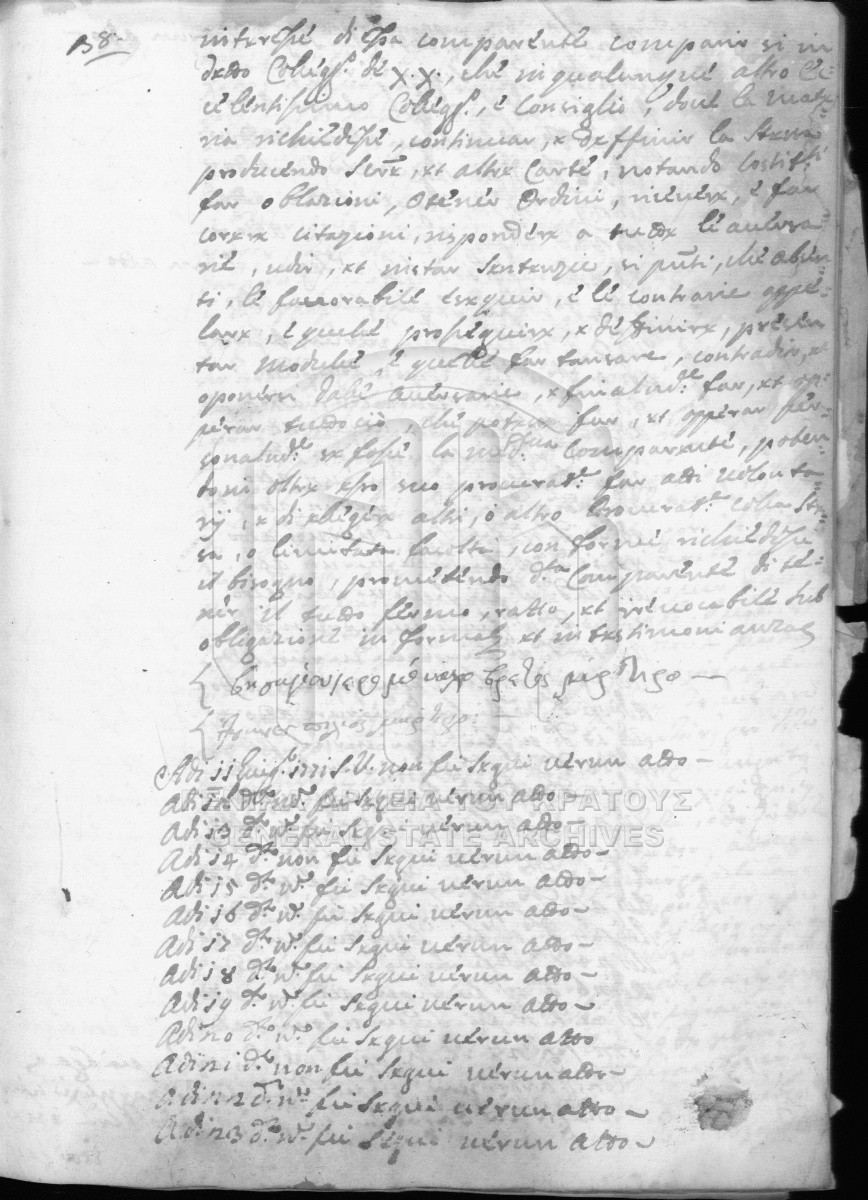 138
interesse di essa comparente comparir sì in
detto Colleg.º de X.X., che in qualunque altro Ec=
celentissimo Colleg.º, e Consiglio, dove la mate=
ria richiedesse, continuar, et deffinir la stessa
producendo Scrre, et altre Carte, notando Costitti
far oblazioni, ottener Ordini, e far
citazioni, risponder a tutte le aversa=
rie, udir, et sentenzie, sì pnti, che absen=
ti, le favorabile esequir, e le contrarie appe=
lare, e quelle proseguire, et deffinire, presen=
tar modulle, e quelle far tansare, contradir, et
oponersi dalle aversarie, et finalmde far, et op=
perar tuttociò, che potrebe far, et opperar per=
sonalmde se fosse la medma Comparente, poten=
do oltre esso suo procuratr far atti volonta=
rij, et di elleger altri, o altro Procuratr colla stes=
sa, o limitata facoltà, conforme richiedesse
il bisogno, prometendo da Comparente di te=
ner il tutto fermo, ratto, et irevocabile sub
obligatione in forma, et in testimoni
βρετὸς μάρτηρο
μάρτηρο:
Adi 11 1771 S.V. non fu segui verun atto
Adi 12 do no fu segui verun atto
Adi 13 do no fu segui verun atto
Adi 14 do non fu segui verun atto
Adi 15 do no fu segui verun atto
Adi 16 do no fu segui verun atto
Adi 17 do no fu segui verun atto
Adi 18 do no fu segui verun atto
Adi 19 do no fu segui verun atto
Adi 20 do no fu segui verun atto
Adi 21 do non fu segui verun atto
Adi 22 do no fu segui verun atto
Adi 23 do no fu segui verun atto
ΓΕΝΙΚΑ ΑΡΧΕΙΑ ΤΟΥ ΚΡΑΤΟΥΣ
GENERAL STATE ARCHIVES